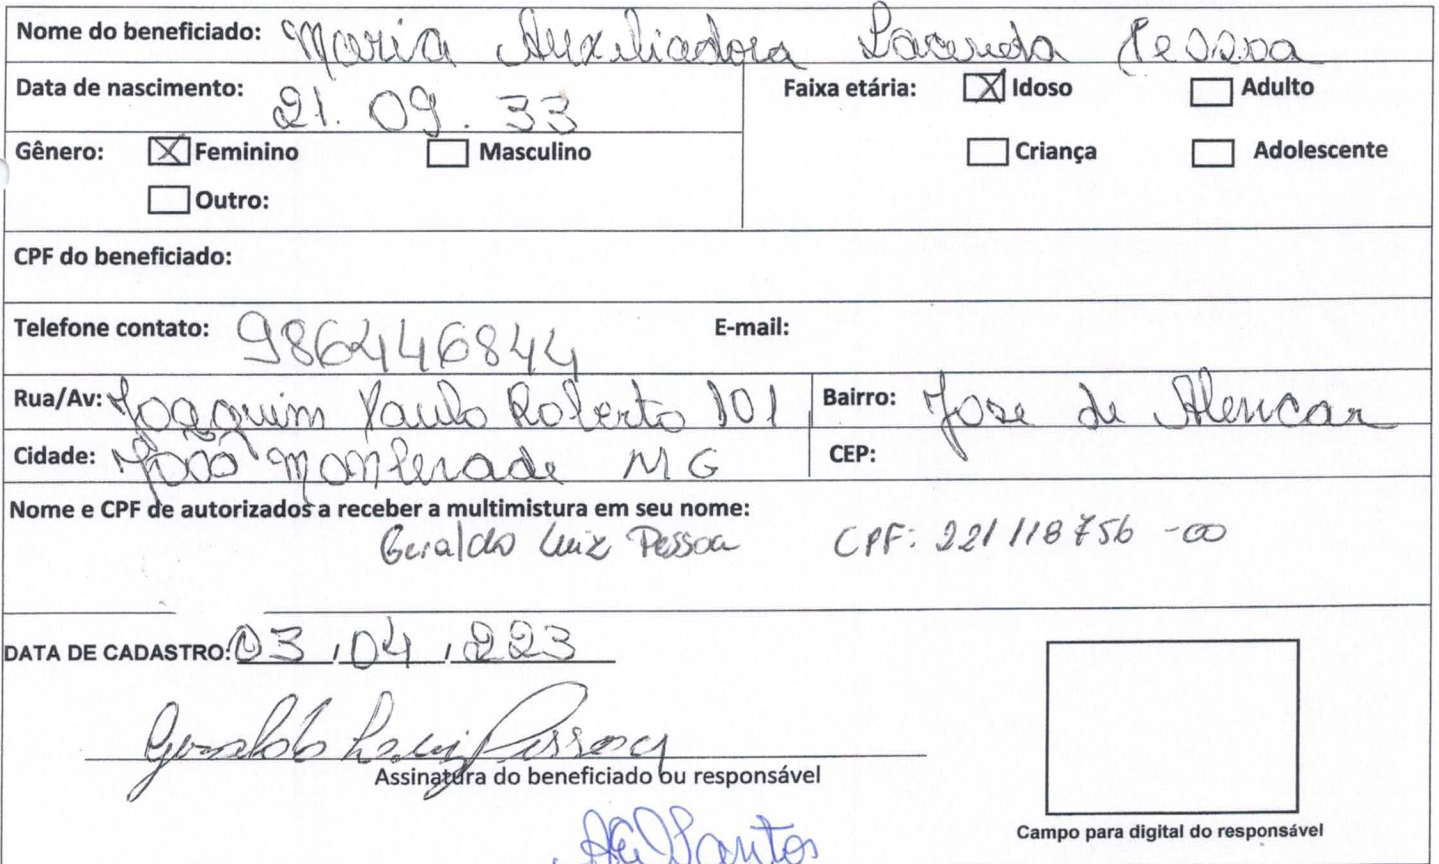 Nome do beneficiado: Maria Auxiliadora Lacerda Pessoa
Data de nascimento: 21.09.33
Faixa etária: X Idoso Adulto
Gênero: X Feminino Masculino
Criança Adolescente
Outro:
CPF do beneficiado:
Telefone contato: 986446844 E-mail:
Rua/Av: Joaquim Paulo Roberto 101 Bairro: Jose de Alencar
Cidade: João Monlevade MG CEP:
Nome e CPF de autorizados a receber a multimistura em seu nome:
Geraldo Luiz Pessoa CPF: 221118756-00
DATA DE CADASTRO: 03/04/223
Geraldo Luiz Pessoa
Assinatura do beneficiado ou responsável
Santos
Campo para digital do responsável